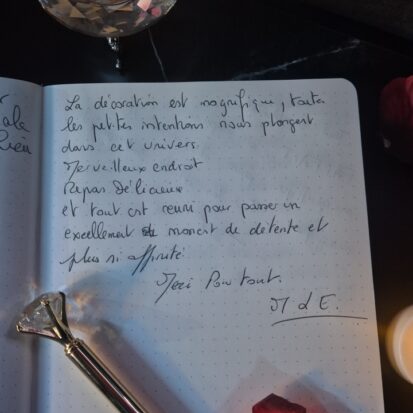 La décoration est magnifique, toutes
les petites intentions nous plongent
dans cet univers.
Merveilleux endroit
Repas Délicieux
et tout est reuni pour passer un
excellement moment de détente et
plus si affinité.
Merci Pour tout.
M d E.